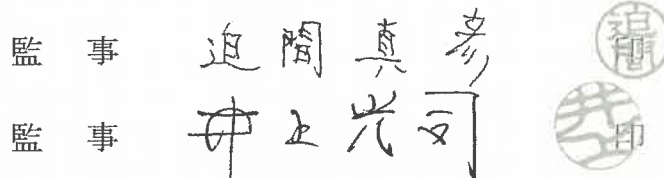 監 事 迫間真彦 印
監 事 井上光司 印